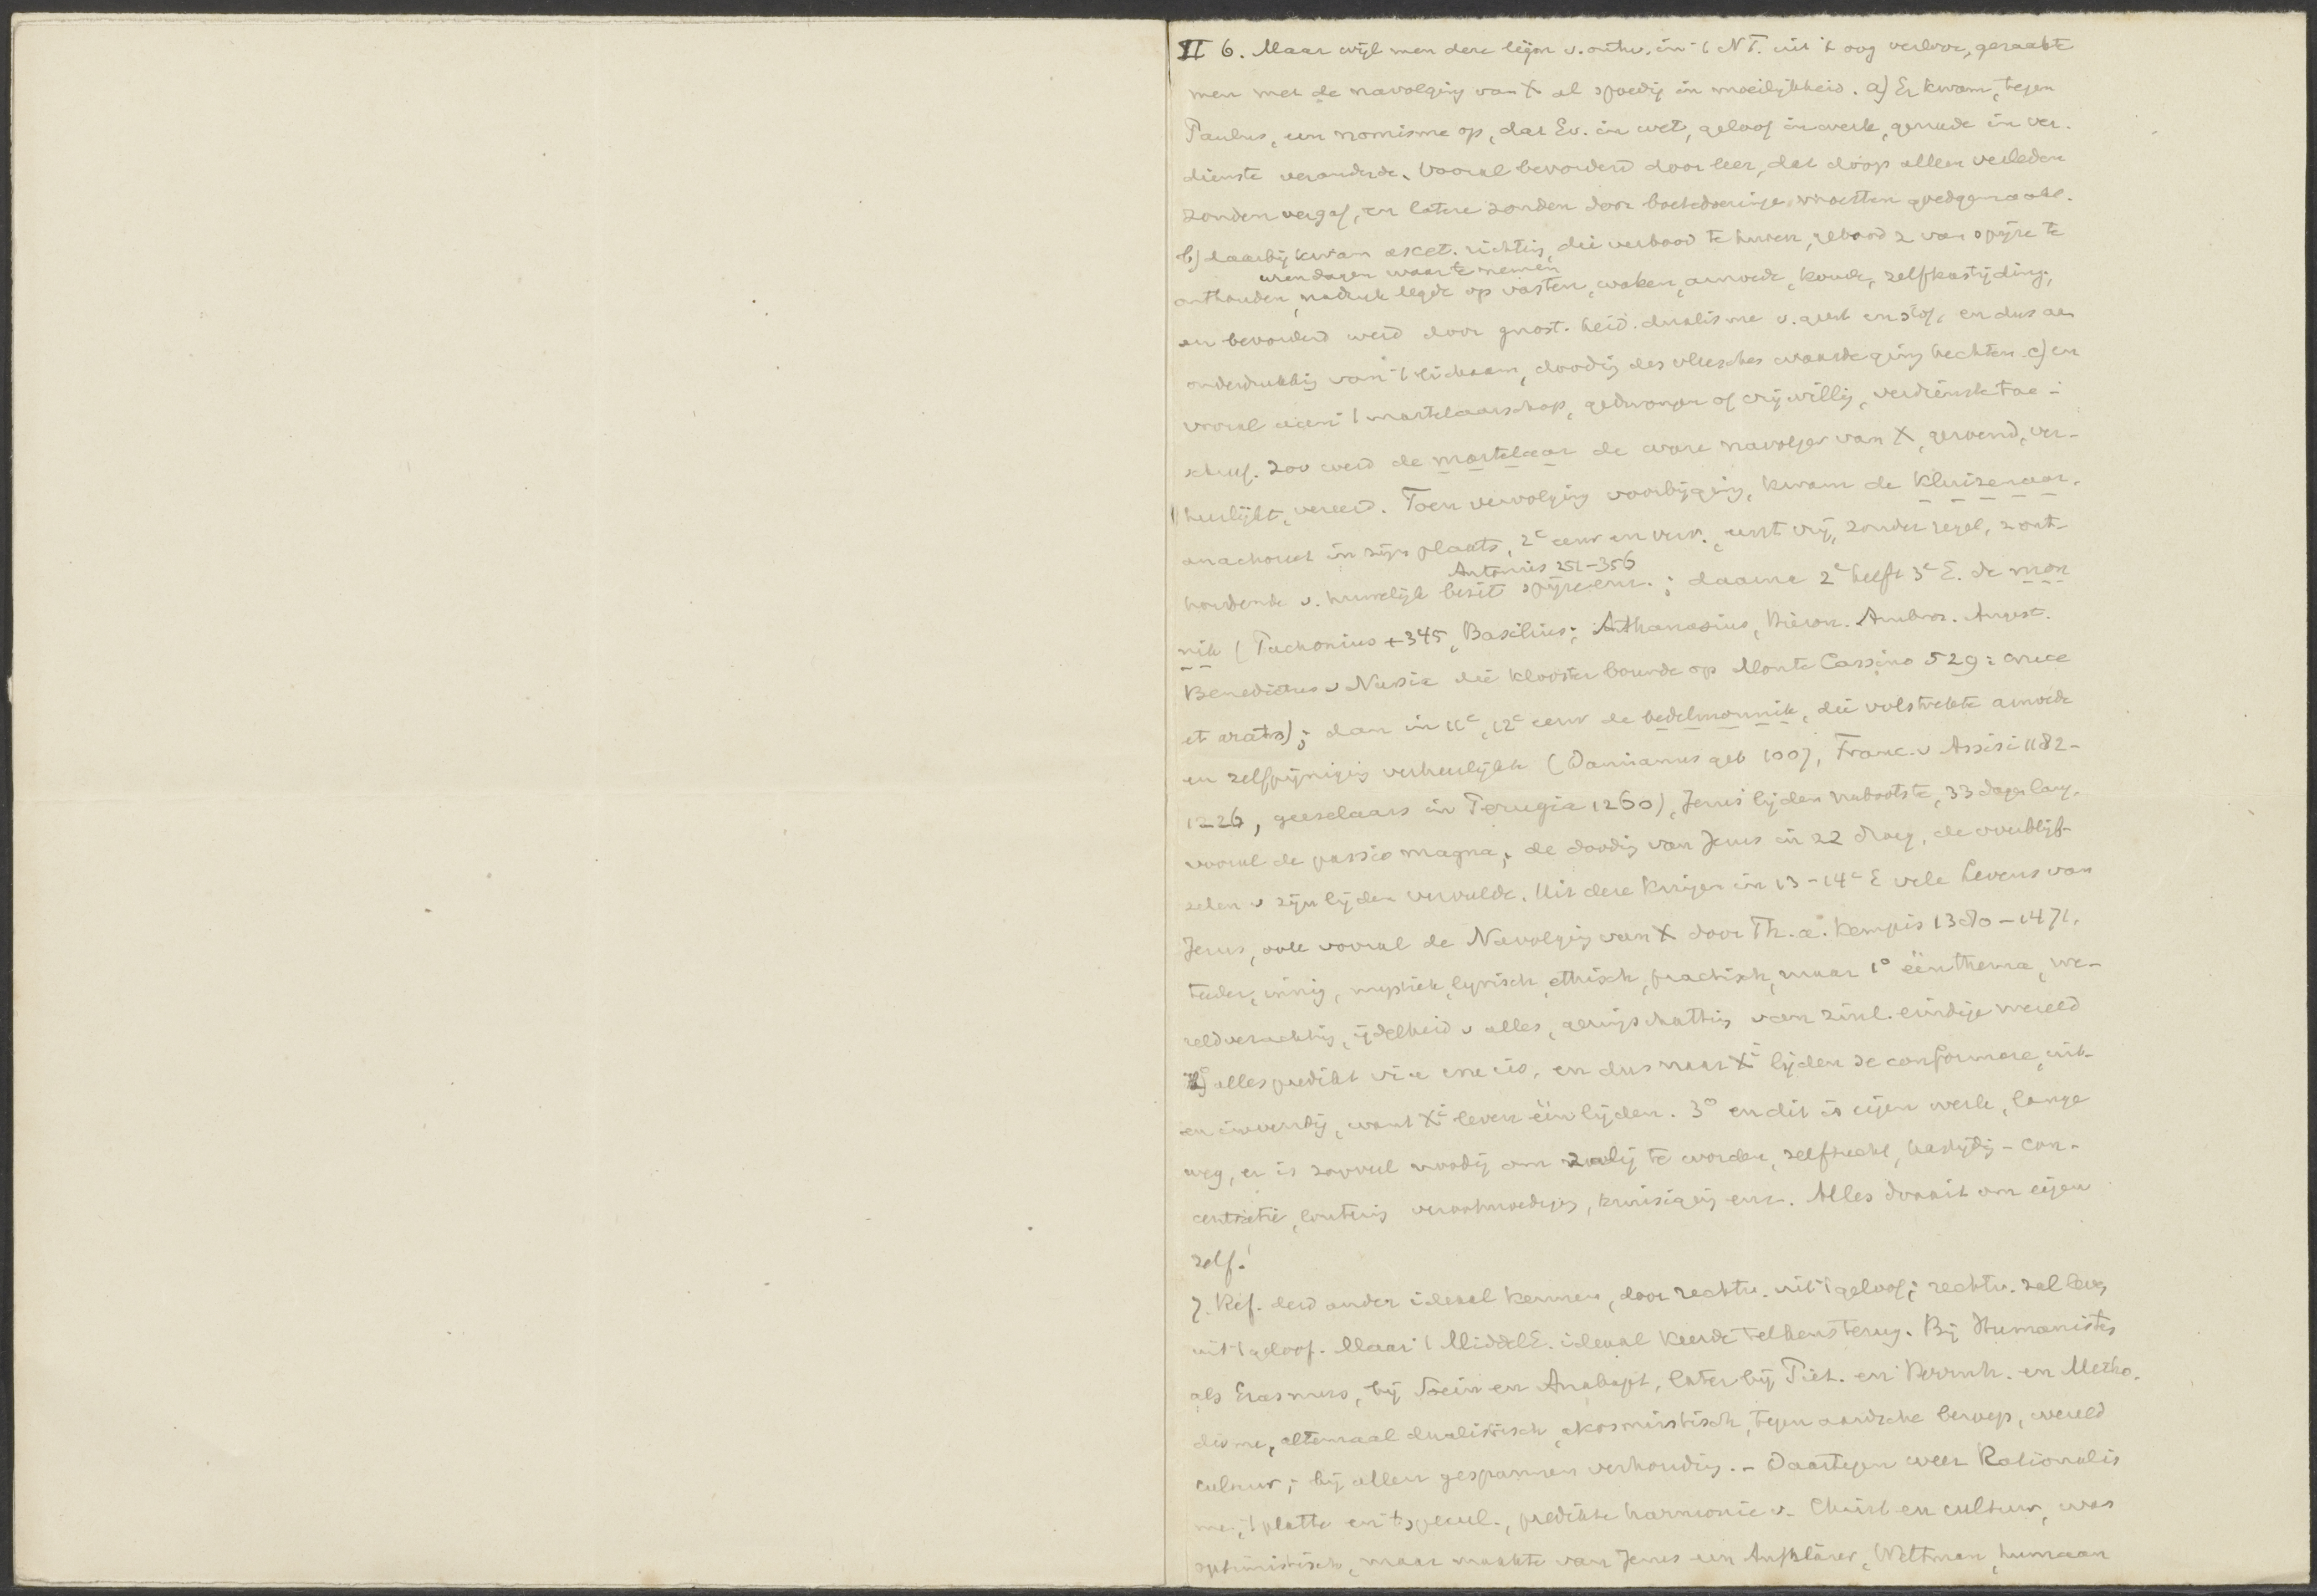 II 6. Maar wijl men deze lijn v. ontw. in 't NT. uit 't oog verloor, geraakte
men met de navolging van X al spoedig in moeilijkheid. a) Er kwam, tegen
Paulus, een nomisme op, dat Ev. in wet, geloof in werk, genade in ver-
dienste veranderde. Vooral bevorderd door leer, dat doop alleen verleden
zonden vergaf, en latere zonden door boetedoeninge moesten goedgemaakt.
b) daarbij kwam ascet. richting, die verbood te huwen, gebood z van spijze te
urendagen waar te nemen
onthouden, nadruk legde op vasten, waken, armoede, koude, zelfkastijding,
en bevorderd werd door gnost. heid. dualisme v. geest en stof, en dus aan
onderdrukking van 't lichaam, dooding des vleesches waarde ging hechten. c) en
vooral aan 't martelaarschap, gedwongen of vrijwillig, verdienste toe-
schreef. Zoo werd de martelaar de ware navolger van X, geroemd, ver-
heerlijkt, vereerd. Toen vervolging voorbijging, kwam de kluizenaar,
anachoreet in zijn plaats, 2e eeuw en verv., eerst vrij, zonder regel, z ont-
Antonius 251-356
houdende v. huwelijk bezit spijze enz.; daarna 2e helft 3e E. de mon
nik (Pachomius +345, Basilius; Anthanasius, Hieron. Ambros. August.
Benedictus v Nursia die klooster bouwde op Monte Cassino 529: cruce
et aratro); dan in 11e, 12e eeuw de bedelmonnik, die volstrekte armoede
en zelfpijniging verheerlijkte (Damianus geb 1007, Franc. v Assisi 1182-
1226, geeselaars in Perugia 1260), Jezus' lijden nabootste, 33 dagen lang,
vooral de passio magna, de dooding van Jezus in 22, de overblijf-
selen v zijn lijden vervulde. Uit deze kringen in 13-14e E vele Levens van
Jezus, ook vooral de Navolging van X door Th. a. Kempis 1380-1471,
teeder, innig, mystiek, lyrisch, ethisch, practisch, maar 1° één thema, we-
reldverachting, ijdelheid v alles, geringschatting van zinl. eindige wereld
2) alles predikt via crucis, en dus naar Xi lijden se conformare, uit-
en inwendig, want Xi leven één lijden. 3° en dit is eigen werk, lange
weg, er is zooveel noodig om zalig te worden, zelftucht, kastijding - con-
centratie, loutering verootmoediging, kruisiging enz. Alles draait om eigen
zelf!
7. Ref. deed ander ideaal kennen, door rechtv. uit 't geloof; rechtv. zal leven
uit 't geloof. Maar 't MiddelE. ideaal keerde telkens terug. Bij Humanisten
als Erasmus, bij Socin en Anabapt, later bij Piet. en Herrnh. en Metho-
disme, altemaal dualistisch, akosmistisch, tegen aardsche beroep, wereld
cultuur; bij allen gespannen verhouding. - Daartegen weer Rationalis
me, 't platte en 't specul., predikte harmonie v. Christ en cultuur, was
optimistisch, maar maakte van Jezus een Aufklärer, Weltman, humaan